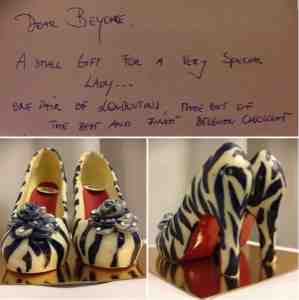 DEAR BEYONCE,
A SMALL GIFT FOR A VERY SPECIAL
LADY...
ONE PAIR OF LOUBOUTINS, MADE OUT OF
THE BEST AND FINEST BELGIAN CHOCOLATE